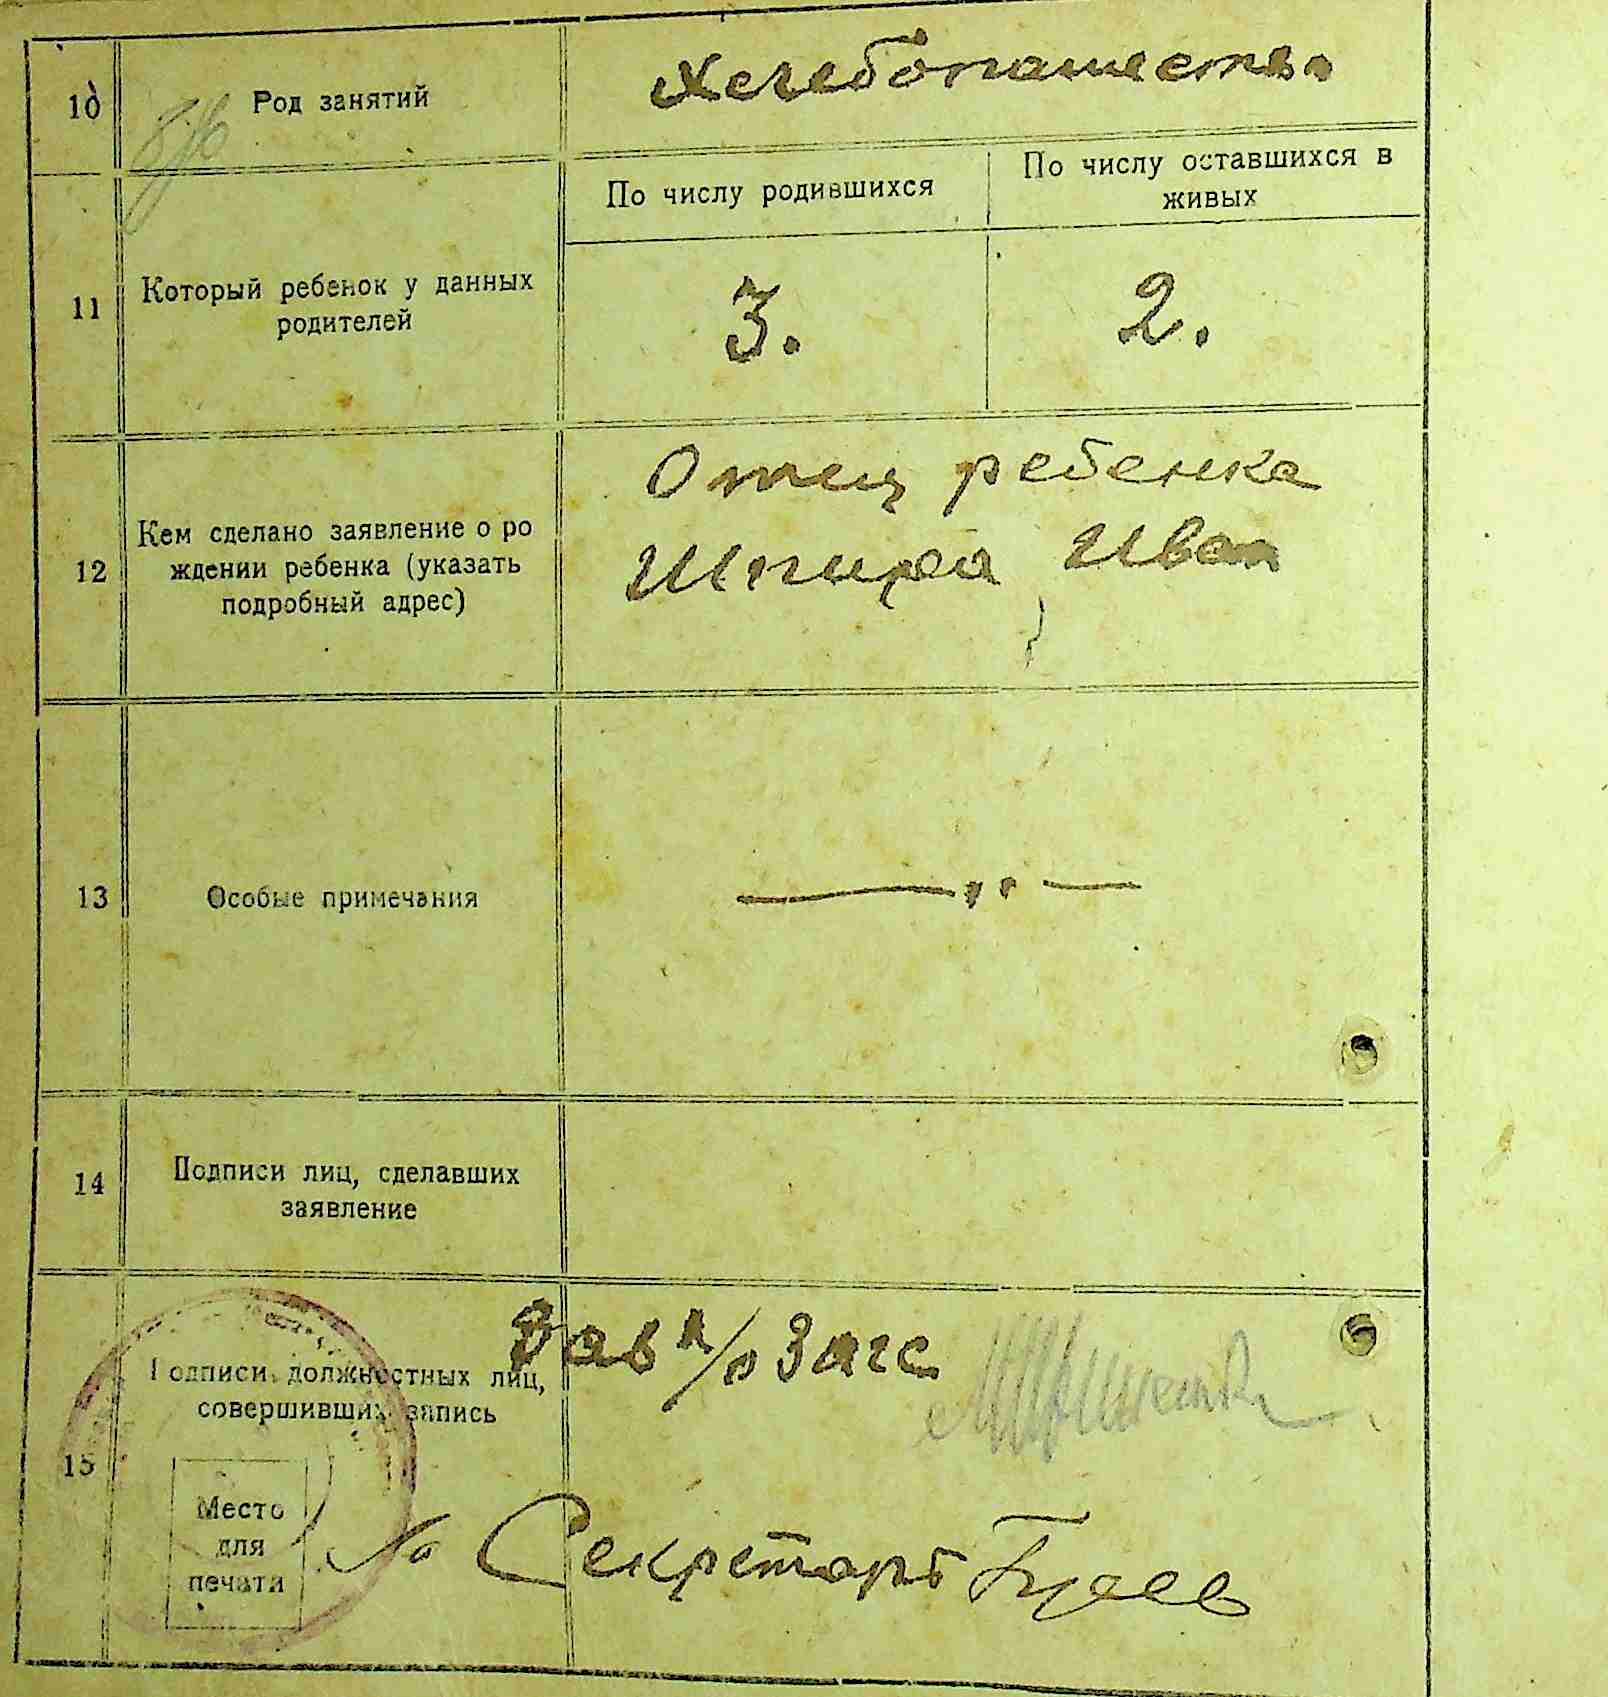 10
Род занятий
Хлебопашество
11
Который ребенок у данных
родителей
По числу родившихся
По числу оставшихся в
живых
3.
2.
12
Кем сделано заявление о ро
ждении ребенка (указать
подробный адрес)
Отец ребенка
Иван
13
Особые примечания
14
Подписи лиц, сделавших
заявление
15
Подписи должностных лиц,
совершивших запись
Место
для
печати
Зав п/о Загс
Секретарь